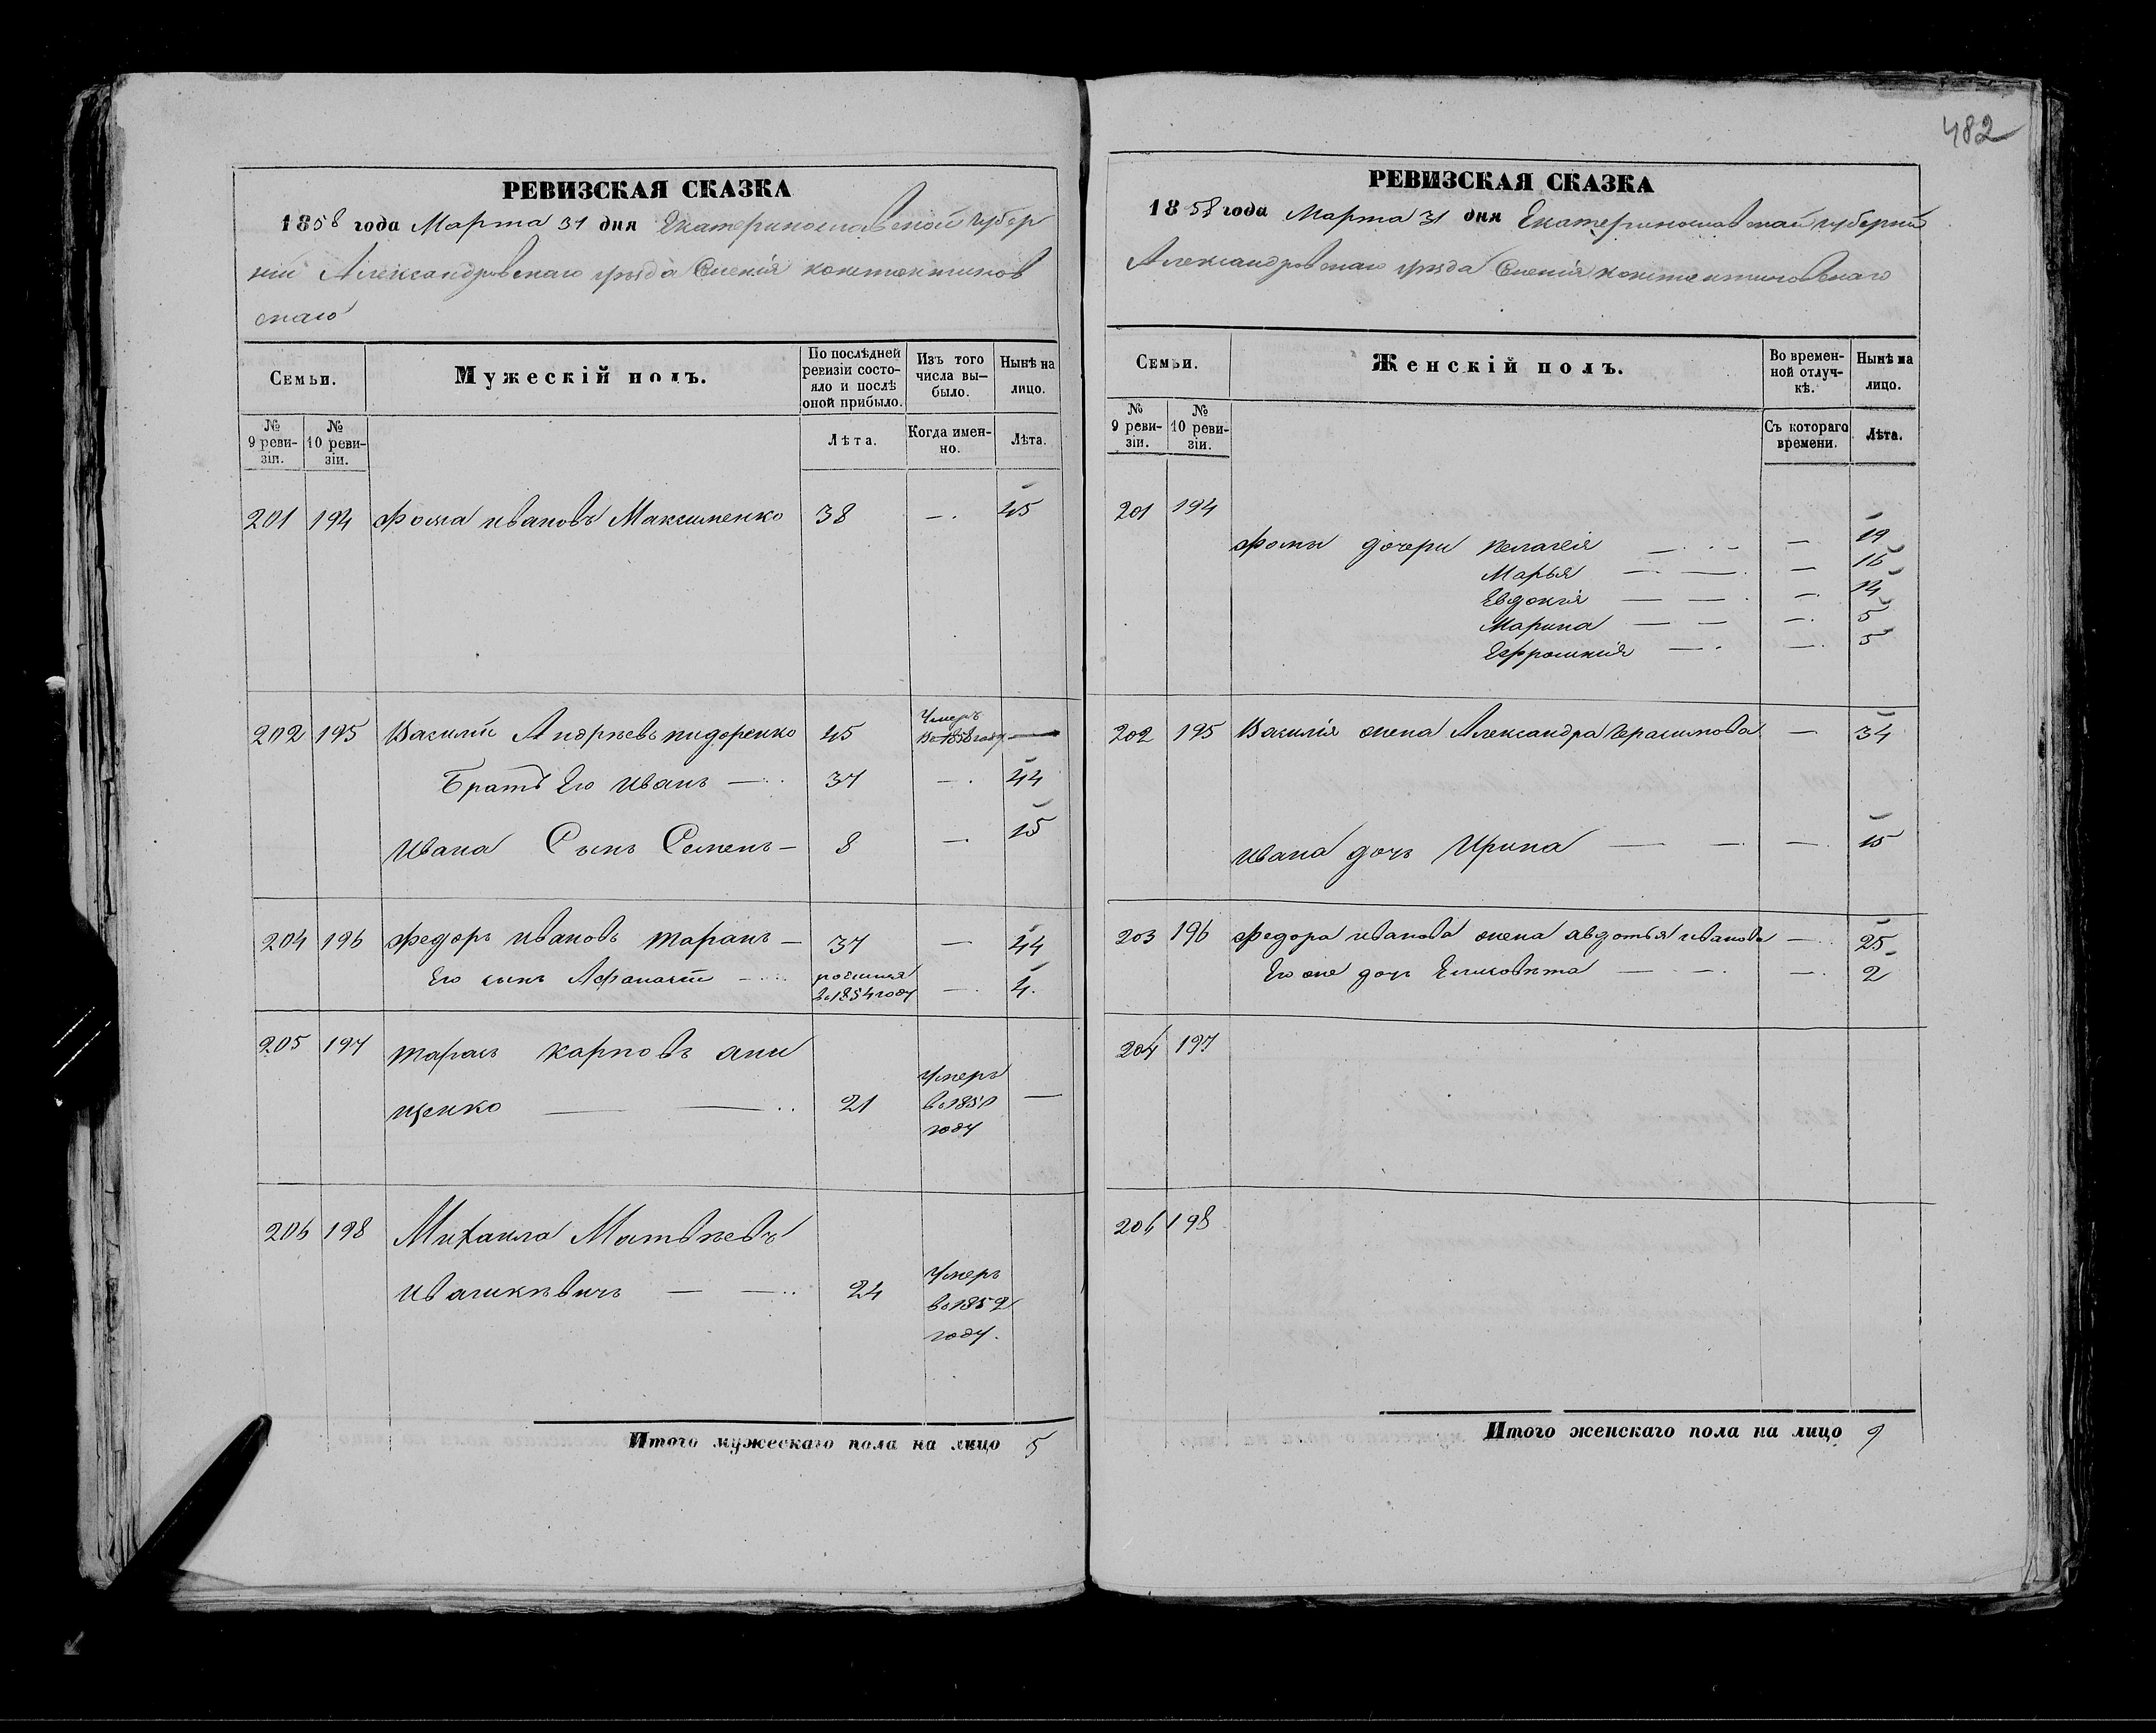 482
РЕВИЗСКАЯ СКАЗКА
1858 года Марта 31 дня Екатеринославской губер
нии Александровскаго уѣзда Сѣленія константинов
скаго
Семьи.
Мужескій полъ.
По послѣдней ревизіи состояло и послѣ оной прибыло.
Изъ того числа вы—было.
Нынѣ на лицо.
№ 9 реви-зіи.
№ 10 реви-зіи.
Лѣта.
Когда имен-но.
Лѣта.
201 194 Фома ивановъ Максименко 38 — 45
202 195 Василій Андрѣевъ пидоренко 45 Умеръ в 1858 году —
Братъ Его иванъ — 37 — 44
ивана Сынъ Семенъ — 8 — 15
204 196 Федоръ ивановъ таранъ — 37 — 44
Его сынъ Афанасій — родился в 1854 году — 4
205 197 тарасъ карповъ они
щенко — — 21 Умеръ в 1851 году —
206 198 Михаила Матвѣевъ
— — 24 Умеръ в 1852 году.
Итого мужескаго пола на лицо 5
РЕВИЗСКАЯ СКАЗКА
1858 года Марта 31 дня Екатеринославской губерніи
Александровскаго уѣзда Сѣленія константиновскаго
Семьи.
Женскій полъ.
Во времен-ной отлуч-кѣ.
Нынѣ на лицо.
№ 9 реви-зіи.
№ 10 реви-зіи.
Съ котораго времени.
Лѣта.
201 194
Фомы дочери пелагея — — 19
Марья — — — 16
Евдокія — — — 14
Марина — — — 5
Ефросинія — — 5
202 195 Василія жена Александра герасимова — 34
ивана дочь Ирина — — — 15
203 196 Федора иванова жена авдотья иванова — 25
Его же дочь Елисовѣта — — — 2
204 197
206 198
Итого женскаго пола на лицо 9